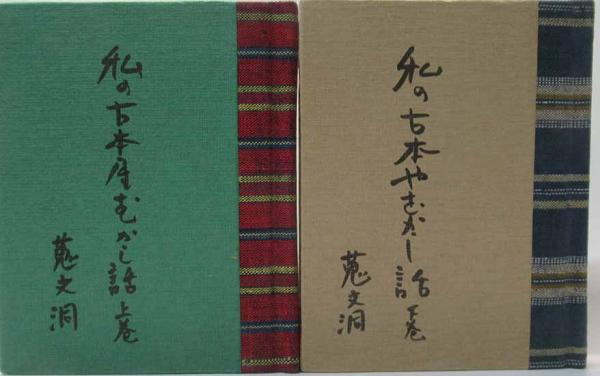 私の古本屋むかし話 上巻
蒐文洞
私の古本やむかし話 下巻
蒐文洞